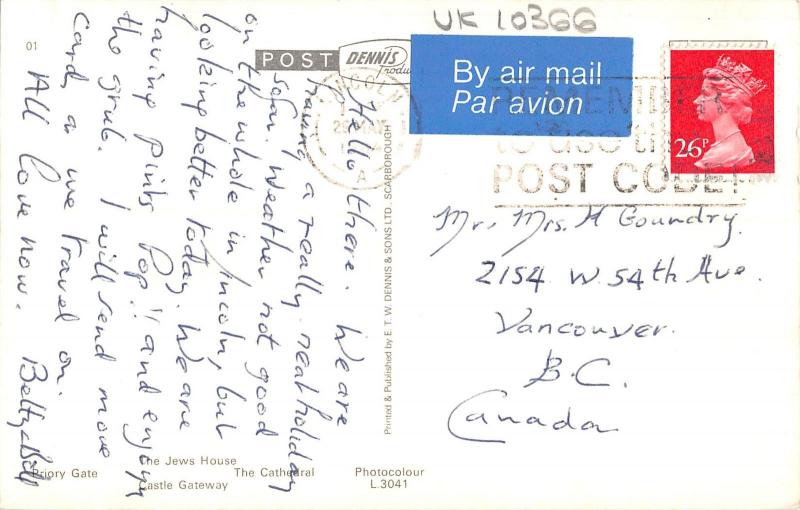 UK 10366
01
POST
DENNIS
Produ
By air mail
Par avion
LINCOLN
REMEMBER
to use the
POST CODE
26P
Hello there. We are
having a really neat holiday
so far. Weather not good
on the whole in Lincoln, but
looking better today. We are
having pints Pop!! and enjoying
the grub. I will send more
card, as we travel on.
All love now. Betty & Bill
Mr. Mrs. H Goundry.
2154 W. 54th Ave.
Vancouver.
B.C.
Canada
Printed & Published by E. T. W. DENNIS & SONS LTD., SCARBOROUGH
The Jews House
Priory Gate
The Cathedral
Castle Gateway
Photocolour
L.3041